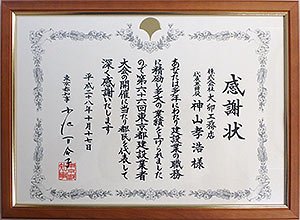 感謝状
株式会社 大卯工務店
代表取締役 神山孝浩様
あなたは多年にわたり建設業の職務
に精励し多大の業績を上げられました
ので第六十六回東京都建設業者
大会の開催に当たり都民を代表して
深く感謝いたします
平成二十八年十月二十七日
東京都知事